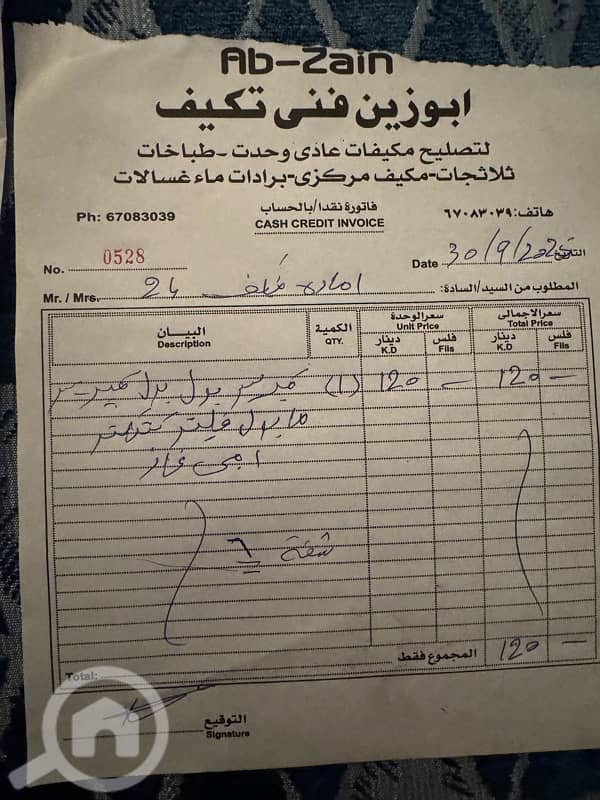 Ab-Zain
ابوزين فنى تكيف
لتصليح مكيفات عادى وحدت - طباخات
ثلاثجات-مكيف مركزى-برادات ماء غسالات
Ph: 67083039 فاتورة نقدا/بالحساب هاتف: ٦٧٠٨٣٠٣٩
CASH CREDIT INVOICE
No. 0528 Date 30/9/ التاريخ
Mr. / Mrs. 24 المطلوب من السيد/السادة:
البيان الكمية سعر الوحدة سعر الاجمالى
Description QTY. Unit Price Total Price
دينار فلس دينار فلس
K.D Fils K.D Fils
(1) 120 – 120 –
شقة ٦
Total: المجموع فقط 120 –
التوقيع
Signature